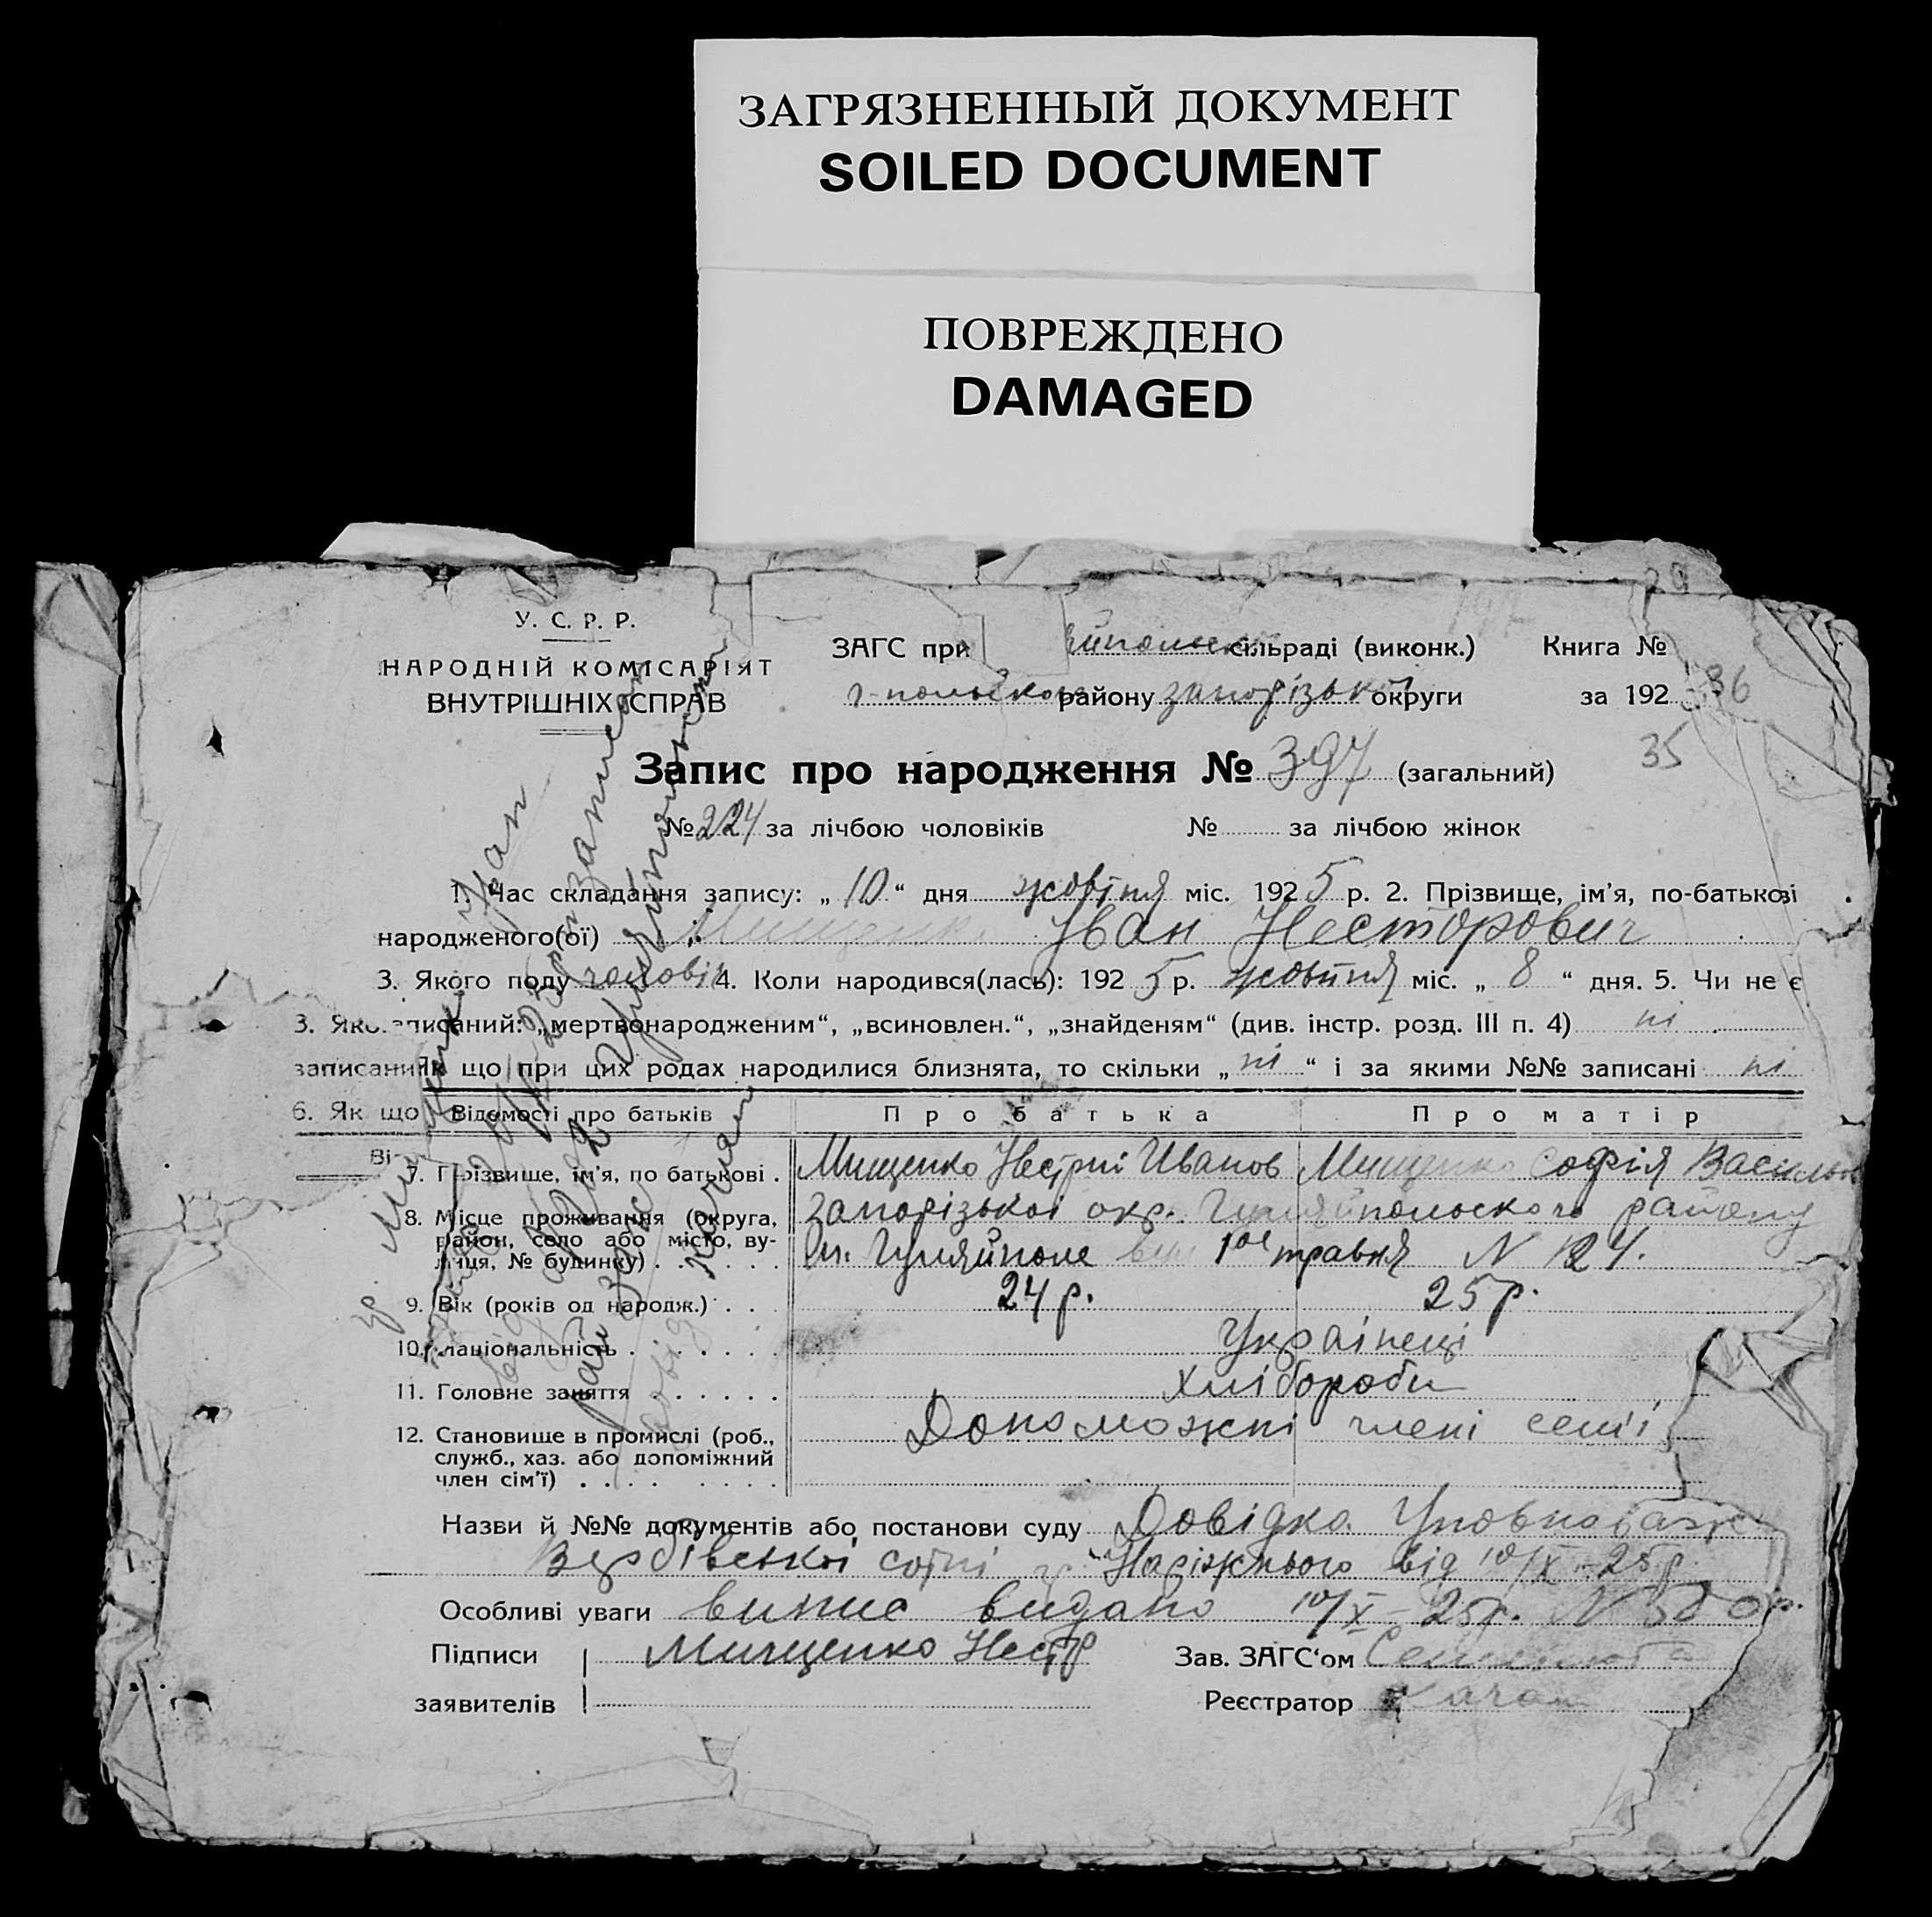 ЗАГРЯЗНЕННЫЙ ДОКУМЕНТ
SOILED DOCUMENT
ПОВРЕЖДЕНО
DAMAGED
У. С. Р. Р.
НАРОДНІЙ КОМІСАРІЯТ
ВНУТРІШНІХ СПРАВ
ЗАГС при йпольськ сільраді (виконк.) Книга №
г-польского району запорізької округи за 192
36
35
Запис про народження № 397 (загальний)
№ 224 за лічбою чоловіків № за лічбою жінок
1. Час складання запису: „ 10 “ дня жовтня міс. 1925 р. 2. Прізвище, ім’я, по-батькові
народженого(ої) Мищенко Іван Несторович
3. Якого полу чоловік 4. Коли народився(лась): 1925 р. жовтня міс. „ 8 “ дня. 5. Чи не є
3. Яко писаний: „мертвонародженим“, „всиновлен.“, „знайденям“ (див. інстр. розд. III п. 4) ні
записаний що при цих родах народилися близнята, то скільки „ ні “ і за якими №№ записані ні
6. Як що Відомості про батьків Про батька Про матір
Ві
7. Прізвище, ім’я, по батькові . Мищенко Нестір Иванов Мищенко Софія Васильов
8. Місце проживання (округа, район, село або місто, вулиця, № будинку) . . . . . .
Запорізької окр. Гуляйпольского району
Гуляйполе 1ое травня N 124.
9. Вік (років од народж.) . . . 24 р. 25 р.
10. національність . . . . . . Українці
11. Головне заняття . . . . . . хлібороби
12. Становище в промислі (роб., служб., хаз. або допоміжний член сім’ї) . . . . . . . .
Допоможні члені семії
Назви й №№ документів або постанови суду Довідка Уповноваж
Вербівської сотні Наріжнього від 10/X-25р.
Особливі уваги випис видано 10/X-25р. N
Підписи Мищенко Нестр Зав. ЗАГС‘ом
заявителів Реєстратор Качан